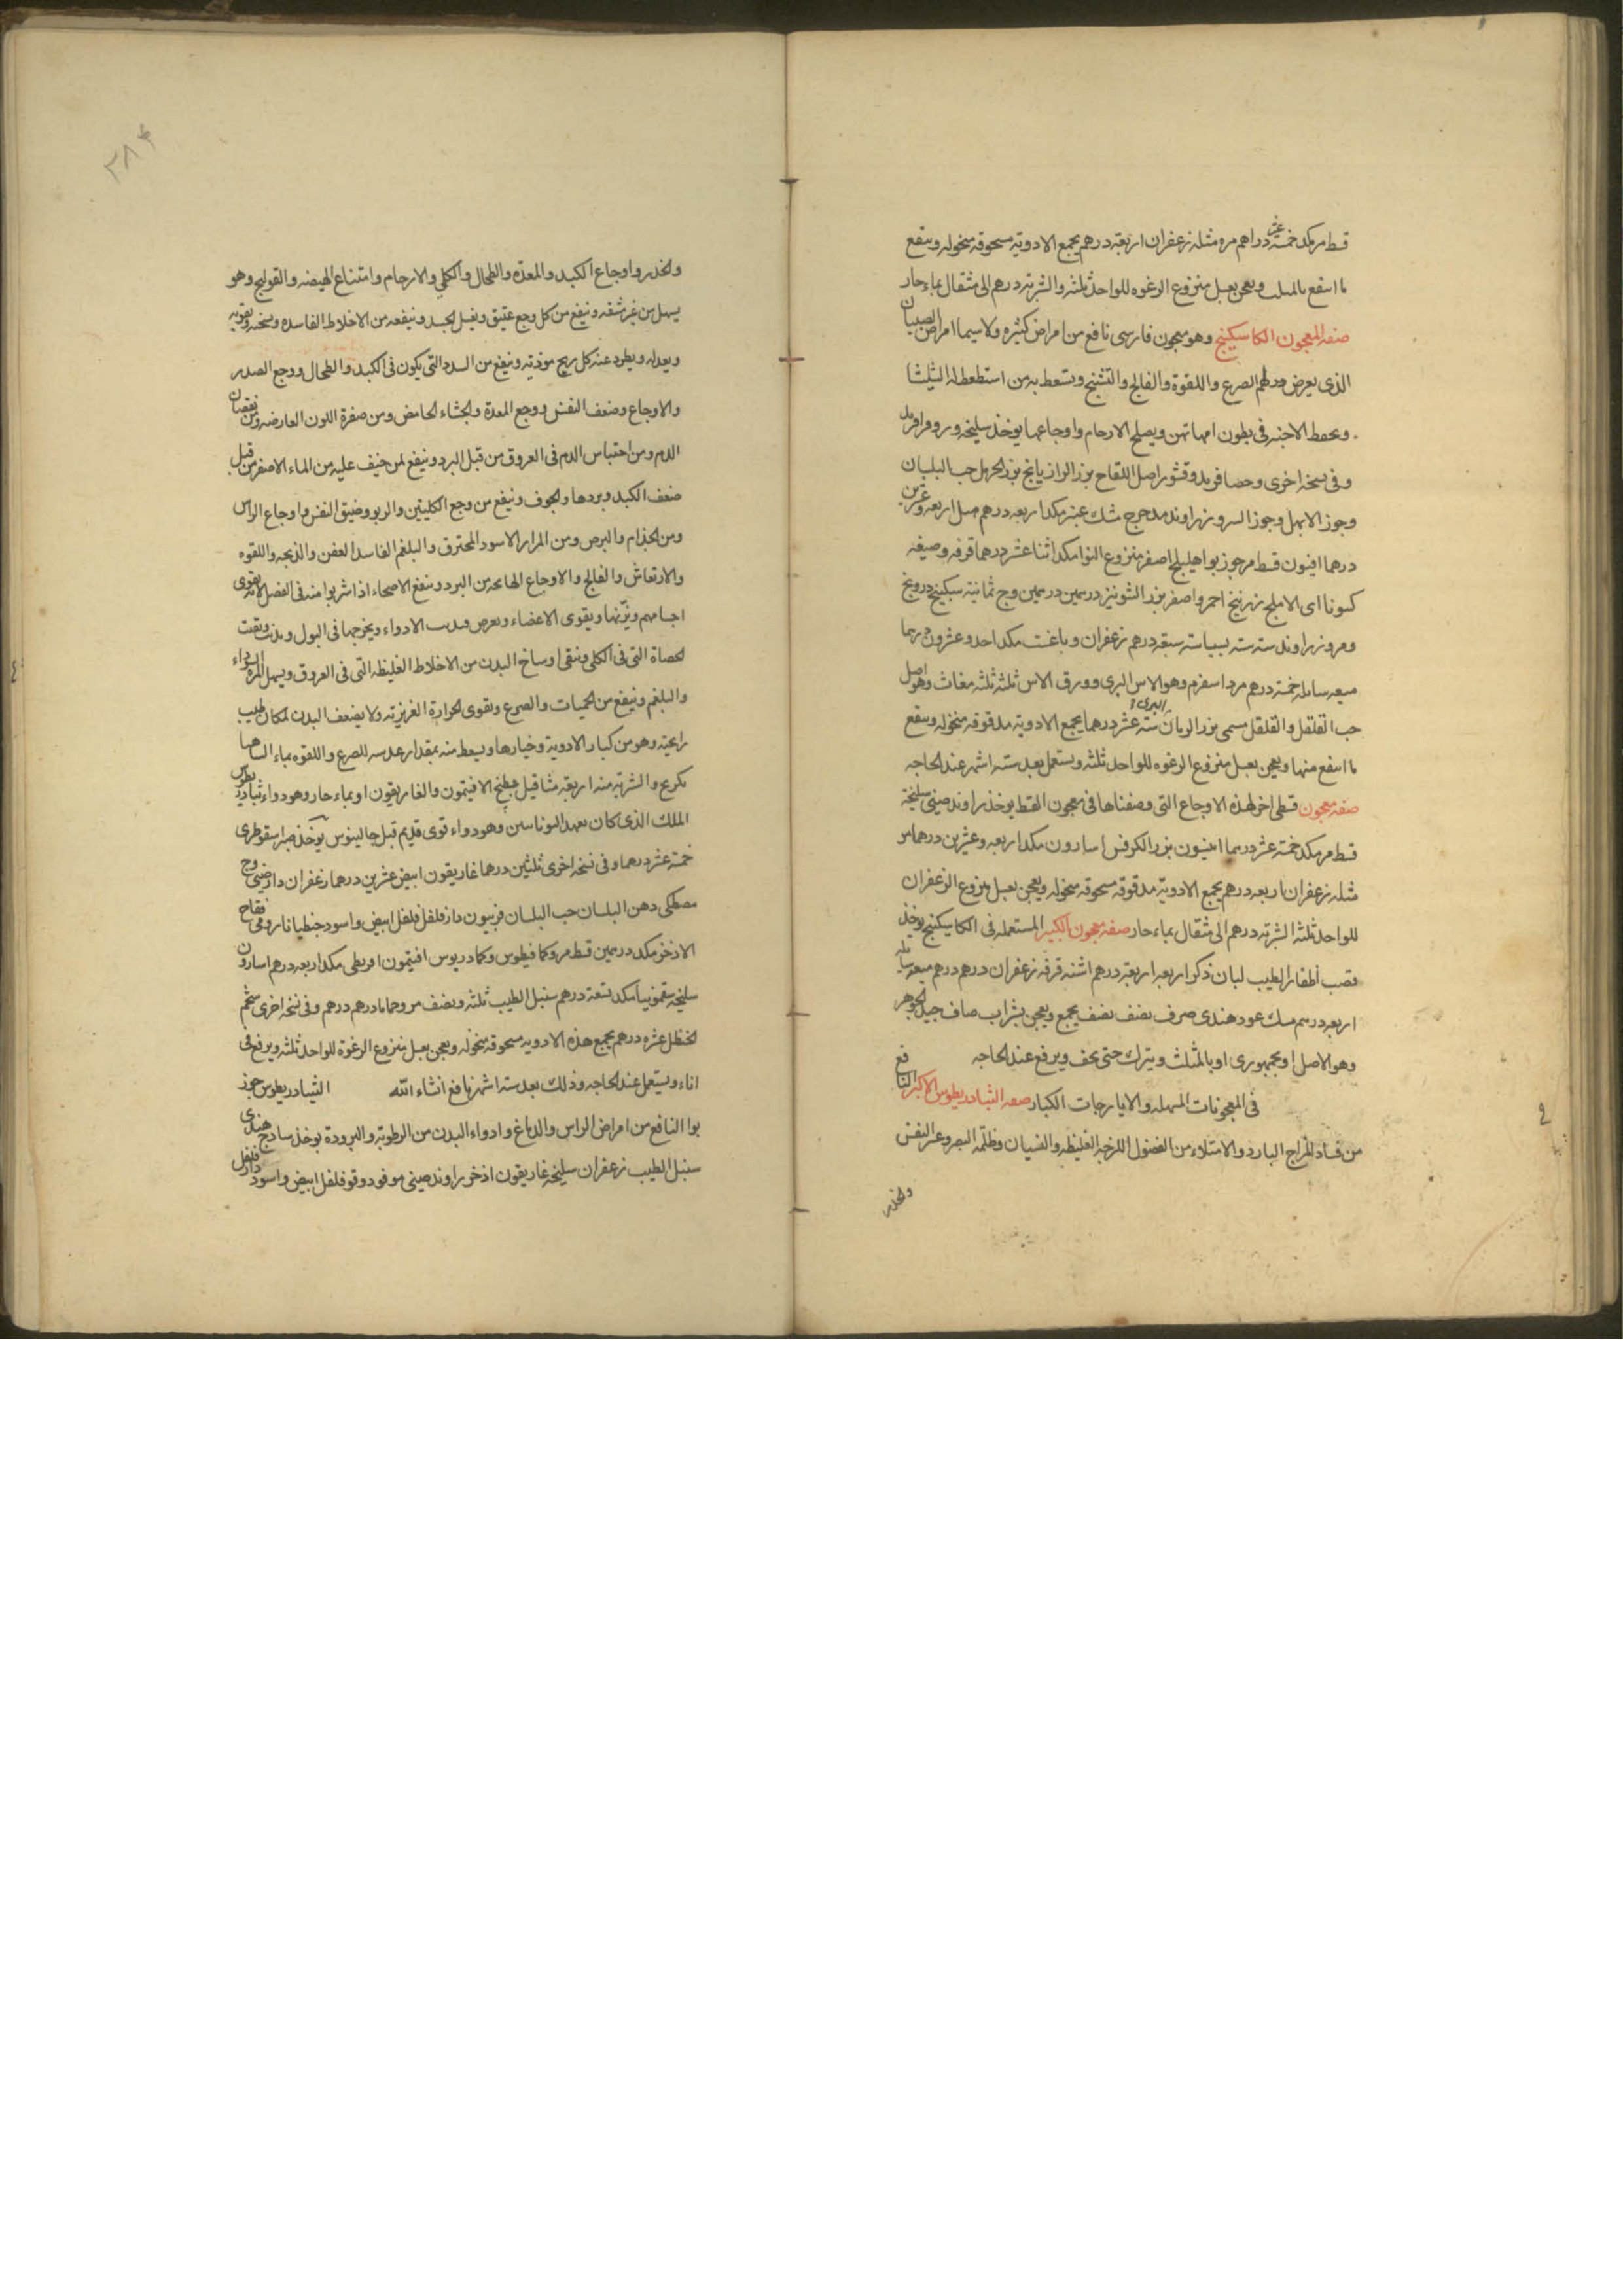 قسط مر مكد خمسة عشر دراهم مره مثله زعفران اربعة درهم يجمع الادوية مسحوقه منخوله وينقع
ما انتقع بالمثلث ويعجن بعسل منزوع الرغوه للواحد ثلثه والشربه درهم الى مثقال بماء حار
صفه المعجون الكاسكينج وهو معجون فارسى نافع من امراض كثيره ولا سيما امراض الصبيان
الذى يعرض لهم الصرع واللقوة والفالج والتشنج ويسعط به من استطعط له الثيلثا
ويحفظ الاجنه فى بطون امهاتهن ويصلح الارحام واوجاعها يوخذ سليخه
وفى نسخه اخرى وقشور اصل اللفاح بزر الرازيانج بزر الحرمل حب البلسان
وجوز الابهل وجوز السرو زراوند مدحرج مشك عنبر مكد اربعه درهم عسل اربعه وعشرين
درهما افيون قسط مر جوز بوا هليلج اصفر منزوع النوا مكد اثنا عشر درهما قرفه
اى الاملج زرنيخ احمر واصفر بزر الشونيز درهمين درهمين وج ثمانية سكبينج درونج
ومر وزراوند سته سته بسباسه سبعه درهم زعفران مكد احد وعشرون درهما
ميعه سائله خمسة درهم مرداسفرم وهو الاس البرى وورق الاس ثلثه ثلثه مغاث وهو اصل
البرى
حب القلقل والقلقل سمى بزر الرمان سته عشر درهما يجمع الادويه مدقوقه منخوله وينقع
ما انتقع منها ويعجن بعسل منزوع الرغوه للواحد ثلثه ويستعمل بعد سته اشهر عند الحاجه
صفه معجون قسطى اخر لهذه الاوجاع التى وصفناها فى معجون القسط يوخذ راوند صينى سليخة
قسط مر مكد خمسة عشر درهما انيسون بزر الكرفس اسارون مكد اربعه وعشرين درهما مر
مثله زعفران اربعه درهم يجمع الادوية مدقوقه مسحوقه منخوله ويعجن بعسل منزوع الزعفران
للواحد ثلثه الشربه درهم الى مثقال بماء حار صفه معجون الكبير المستعمله فى الكاسكينج يوخذ
قصب اظفار الطيب لبان ذكر اربعه اربعة درهم اشنه قرفه زعفران درهم درهم ميعه سائله
اربعه درهم مسك عود هندى صرف نصف نصف يجمع ويعجن بشراب صاف جيد الجوهر
وهو الاصل او بجمهورى او بالمثلث ويترك حتى يجف ويرفع عند الحاجه
فى المعجونات المسهله والايارجات الكبار صفه الثيادريطوس الاكبر النافع
من فساد المزاج البارد والامتلاء من الفضول اللزجه الغليظه والنسيان وظلمه البصر وعسر النفس
والخدر
٢٨٤
والخدر واوجاع الكبد والمعدة والطحال والكلى والارحام وامتناع الهيضه والقولنج وهو
يسهل من غير مشقه وينفع من كل وجع عتيق ويغسل الجسد وينفعه من الاخلاط الفاسده ويسخنه ويقويه
ويعدله ويطرد عنه كل ريح موذيه وينفع من السدد التى يكون فى الكبد والطحال ووجع الصدر
والاوجاع وضعف النفس ووجع المعدة والجشاء الحامض ومن صفرة اللون العارضه ومن نقصان
الدم ومن احتباس الدم فى العروق من قبل البرد وينفع لمن خيف عليه من الماء الاصفر من قبل
ضعف الكبد وبردها والجوف وينفع من وجع الكليتين والربو وضيق النفس واوجاع الراس
ومن الجذام والبرص ومن المرار الاسود المحترق والبلغم الفاسد العفن والذبحه واللقوه
والارتعاش والفالج والاوجاع الهائجه من البرد وينفع الاصحاء اذا شربوا منه فى الفصل لانه يقوى
اجسامهم ويزينها ويقوى الاعضاء ويخرجها فى البول ويفتت
الحصاة التى فى الكلى وينقى اوساخ البدن من الاخلاط الغليظه التى فى العروق ويسهل المره السوداء
والبلغم وينفع من الحميات والصرع ويقوى الحرارة الغريزيه ولا يضعف البدن لمكان طيب
رايحته وهو من كبار الادوية وخيارها ويسعط منه بمقدار عدسه للصرع واللقوه بماء
والشربه منه اربعة مثاقيل بمطبخ الافتيمون والغاريقون او بماء حار وهو دواء ثيادريطوس
الملك الذى كان بعهد اليونانيين وهو دواء قوى قديم قبل جالينوس يوخذ صبر اسقوطرى
خمسة عشر درهما وفى نسخه اخرى ثلثين درهما غاريقون ابيض عشرين درهما زعفران دارصينى وج
مصطكى دهن البلسان حب البلسان فربيون دارفلفل فلفل ابيض واسود جنطيانا رومى فقاح
الاذخر مكد درهمين قسط مر وكمافيطوس وكمادريوس افتيمون اقريطى مكد اربعه درهم اسارون
سليخه سقمونيا مكد تسعة درهم سنبل الطيب ثلثه ونصف مر وحماما درهم درهم وفى نسخه اخرى شحم
الحنظل عشره درهم يجمع هذه الادويه مسحوقه منخوله ويعجن بعسل منزوع الرغوة للواحد ثلثه ويرفع فى
اناء ويستعمل عند الحاجه وذلك بعد سته اشهر نافع انشاء الله الثيادريطوس جوز
بوا النافع من امراض الراس والدماغ وادواء البدن من الرطوبة والبرودة يوخذ سادج هندى
سنبل الطيب زعفران سليخه غاريقون اذخر راوند صينى مو فو دوقو فلفل ابيض واسود دار فلفل